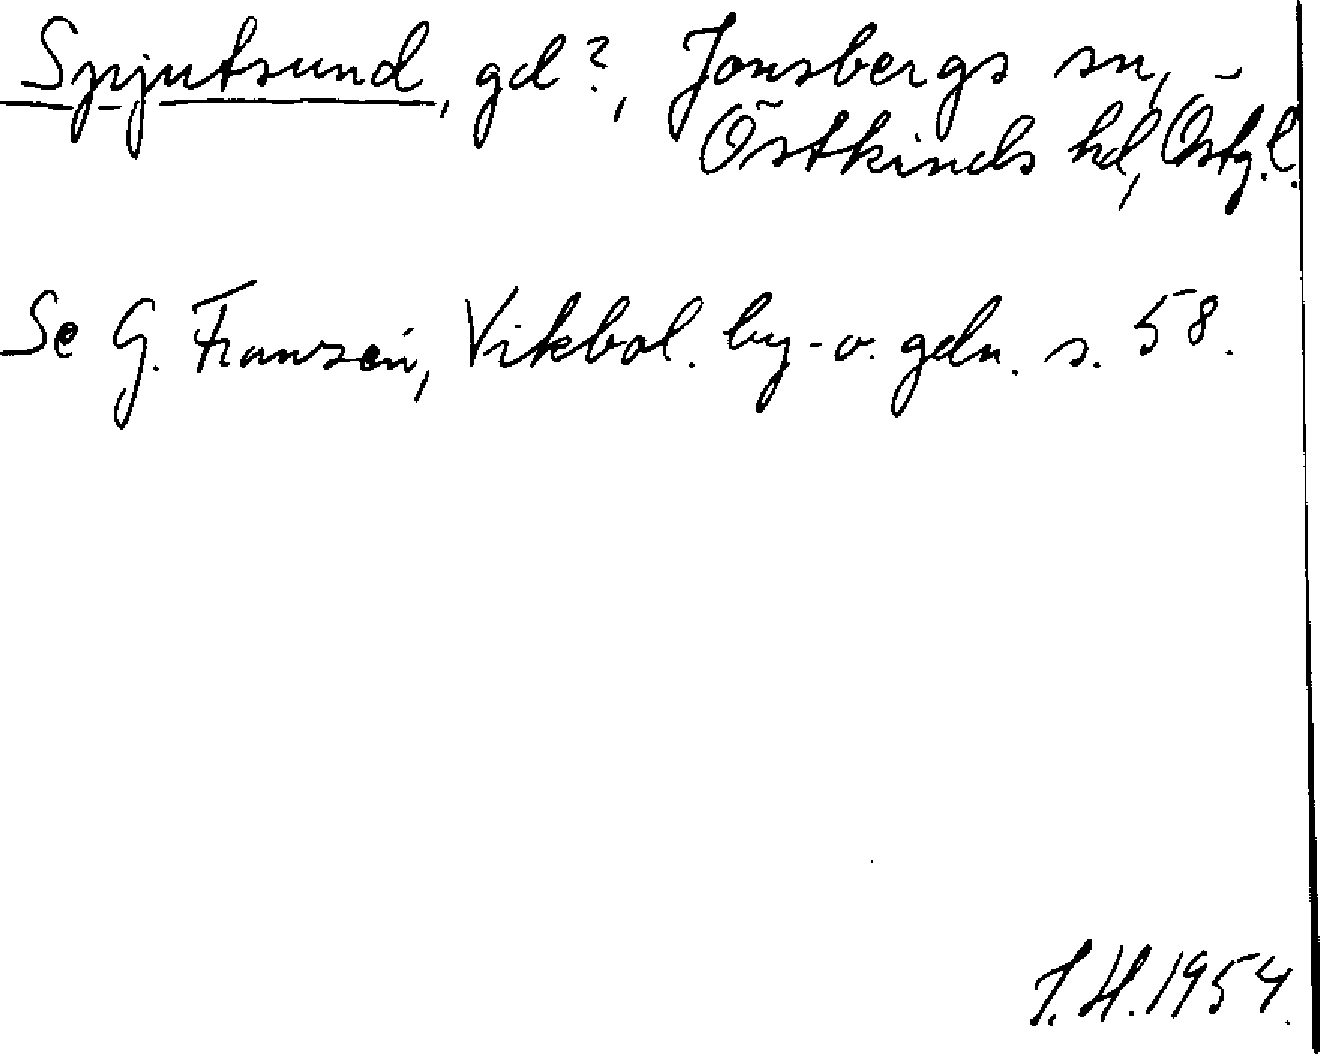 Spjutsund, gd?, Jonsbergs sn,
Östkinds hd, Östg.l.
Se G. Franzén, Vikbol. by- o. gdn. s. 58.
I.H. 1954.